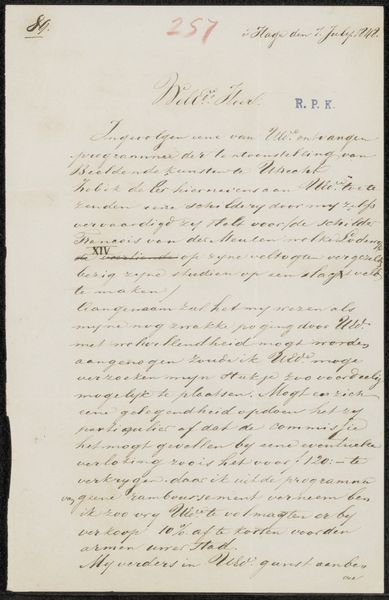 89.
257
's Hage den 7 July 1842.
WelEd. Heer.
R. P. K.
Ingevolgen eene van UEd. ontvangen
programma der tentoonstelling van
Beeldende kunsten te Utrecht
heb ik de Eer hiernevens aan UEd. toe te
zenden eene schildery door my zelf
vervaardigd zy stelt voor de schilder
François van der Meulen welke Lodewyk
XIV op zyne veltogten vergezelt
bezig zyne studien op een slagtveld
te maken /
Aangenaam zal het my wezen als
myne nog zwakke poging door UEd.
met welwillendheid mogt worden
aangenomen zoude ik UEd. moge
verzoeken myn Stukje zoo voordeelig
mogelyk te plaatsen. Mogt er zich
eene gelegendheid opdoen het zy
partigulier of dat de commissie
het mogt gevallen by eene eventueele
verlozing zoo is het voor ƒ 120:- te
verkrygen. daar ik uit de programma
van geene ramboussement verneem ben
ik zoo vry UEd. te volmagten er by
verkoop 10% af te korten voor den
armen uwer Stad.
My verders in UEd. gunst aanbe-